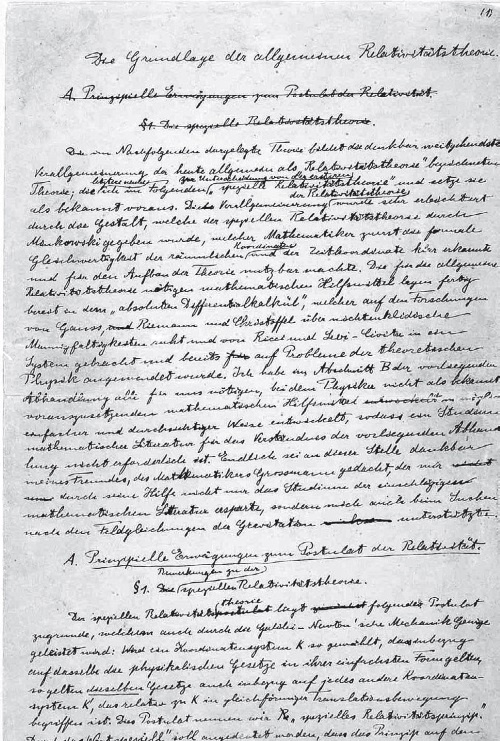 (1)
Die Grundlage der allgemeinen Relativitätstheorie.
A. Prinzipielle Erwägungen zum Postulat der Relativität.
§1. Die spezielle Relativitätstheorie.
Die im Nachfolgenden dargelegte Theorie bildet die denkbar weitgehendste
Verallgemeinerung der heute allgemein als „Relativitätstheorie" bezeichneten
Theorie; die letztere nenne ich im Folgenden zur Unterscheidung von der ersteren „spezielle Relativitätstheorie" und setze sie
als bekannt voraus. Die Verallgemeinerung der Relativitätstheorie wurde sehr erleichtert
durch die Gestalt, welche der speziellen Relativitätstheorie durch
Minkowski gegeben wurde, welcher Mathematiker zuerst die formale
Gleichwertigkeit der räumlichen Koordinaten und der Zeitkoordinate klar erkannte
und für den Aufbau der Theorie nutzbar machte. Die für die allgemeine
Relativitätstheorie nötigen mathematischen Hilfsmittel lagen fertig
bereit in dem „absoluten Differentialkalkül", welcher auf den Forschungen
von Gauss, und Riemann und Christoffel über nichteuklidische
Mannigfaltigkeiten ruht und von Ricci und Levi-Civita in ein
System gebracht und bereits auf Probleme der theoretischen
Physik angewendet wurde. Ich habe im Abschnitt B der vorliegenden
Abhandlung alle für uns nötigen, bei dem Physiker nicht als bekannt
vorauszusetzenden mathematischen Hilfsmittel entwickelt in möglichst
einfacher und durchsichtiger Weise entwickelt, sodass ein Studium
mathematischer Literatur für das Verständnis der vorliegenden Abhand
lung nicht erforderlich ist. Endlich sei an dieser Stelle dankbar
meines Freundes, des Mathematikers Grossmann gedacht, der mir
durch seine Hilfe nicht nur das Studium der einschlägigen
mathematischen Literatur ersparte, sondern mich auch beim Suchen
nach den Feldgleichungen der Gravitation unterstützte.
A. Prinzipielle Erwägungen zum Postulat der Relativität.
Bemerkungen zu der
§1. Die speziellen Relativitätstheorie.
Der speziellen Relativitätstheorie liegt folgendes Postulat
zugrunde, welchem auch durch die Galilei-Newton'sche Mechanik Genüge
geleistet wird: Wird ein Koordinatensystem K so gewählt, dass inbezug
auf dasselbe die physikalischen Gesetze in ihrer einfachsten Form gelten,
so gelten dieselben Gesetze auch inbezug auf jedes andere Koordinaten-
system K', das relativ zu K in gleichförmiger Translationsbewegung
begriffen ist. Dies Postulat nennen wir „spezielles Relativitätsprinzip".
Durch das Wort „speziell" soll angedeutet werden, dass das Prinzip auf den